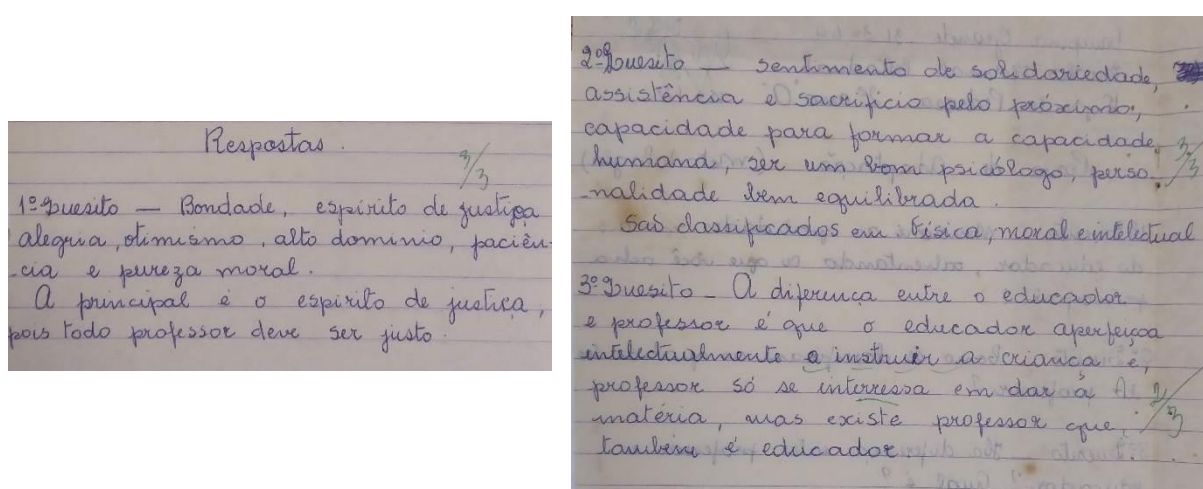 Respostas.
3/3
1º Quesito — Bondade, espirito de justiça
alegria, otimismo, alto dominio, paciên-
-cia e pureza moral.
A principal é o espirito de justiça,
pois todo professor deve ser justo.
2º Quesito — sentimento de solidariedade,
assistência e sacrificio pelo próximo,
capacidade para formar a capacidade
humana, ser um bom psicólogo, perso
-nalidade bem equilibrada.
3/3
Saõ classificados em física, moral e intelectual
3º Quesito - A diferença entre o educador
e professor é que o educador aperfeiçoa
intelectualmente a instruir a criança e,
professor só se interressa em dar á
matéria, mas existe professor que,
também é educador.
2/3